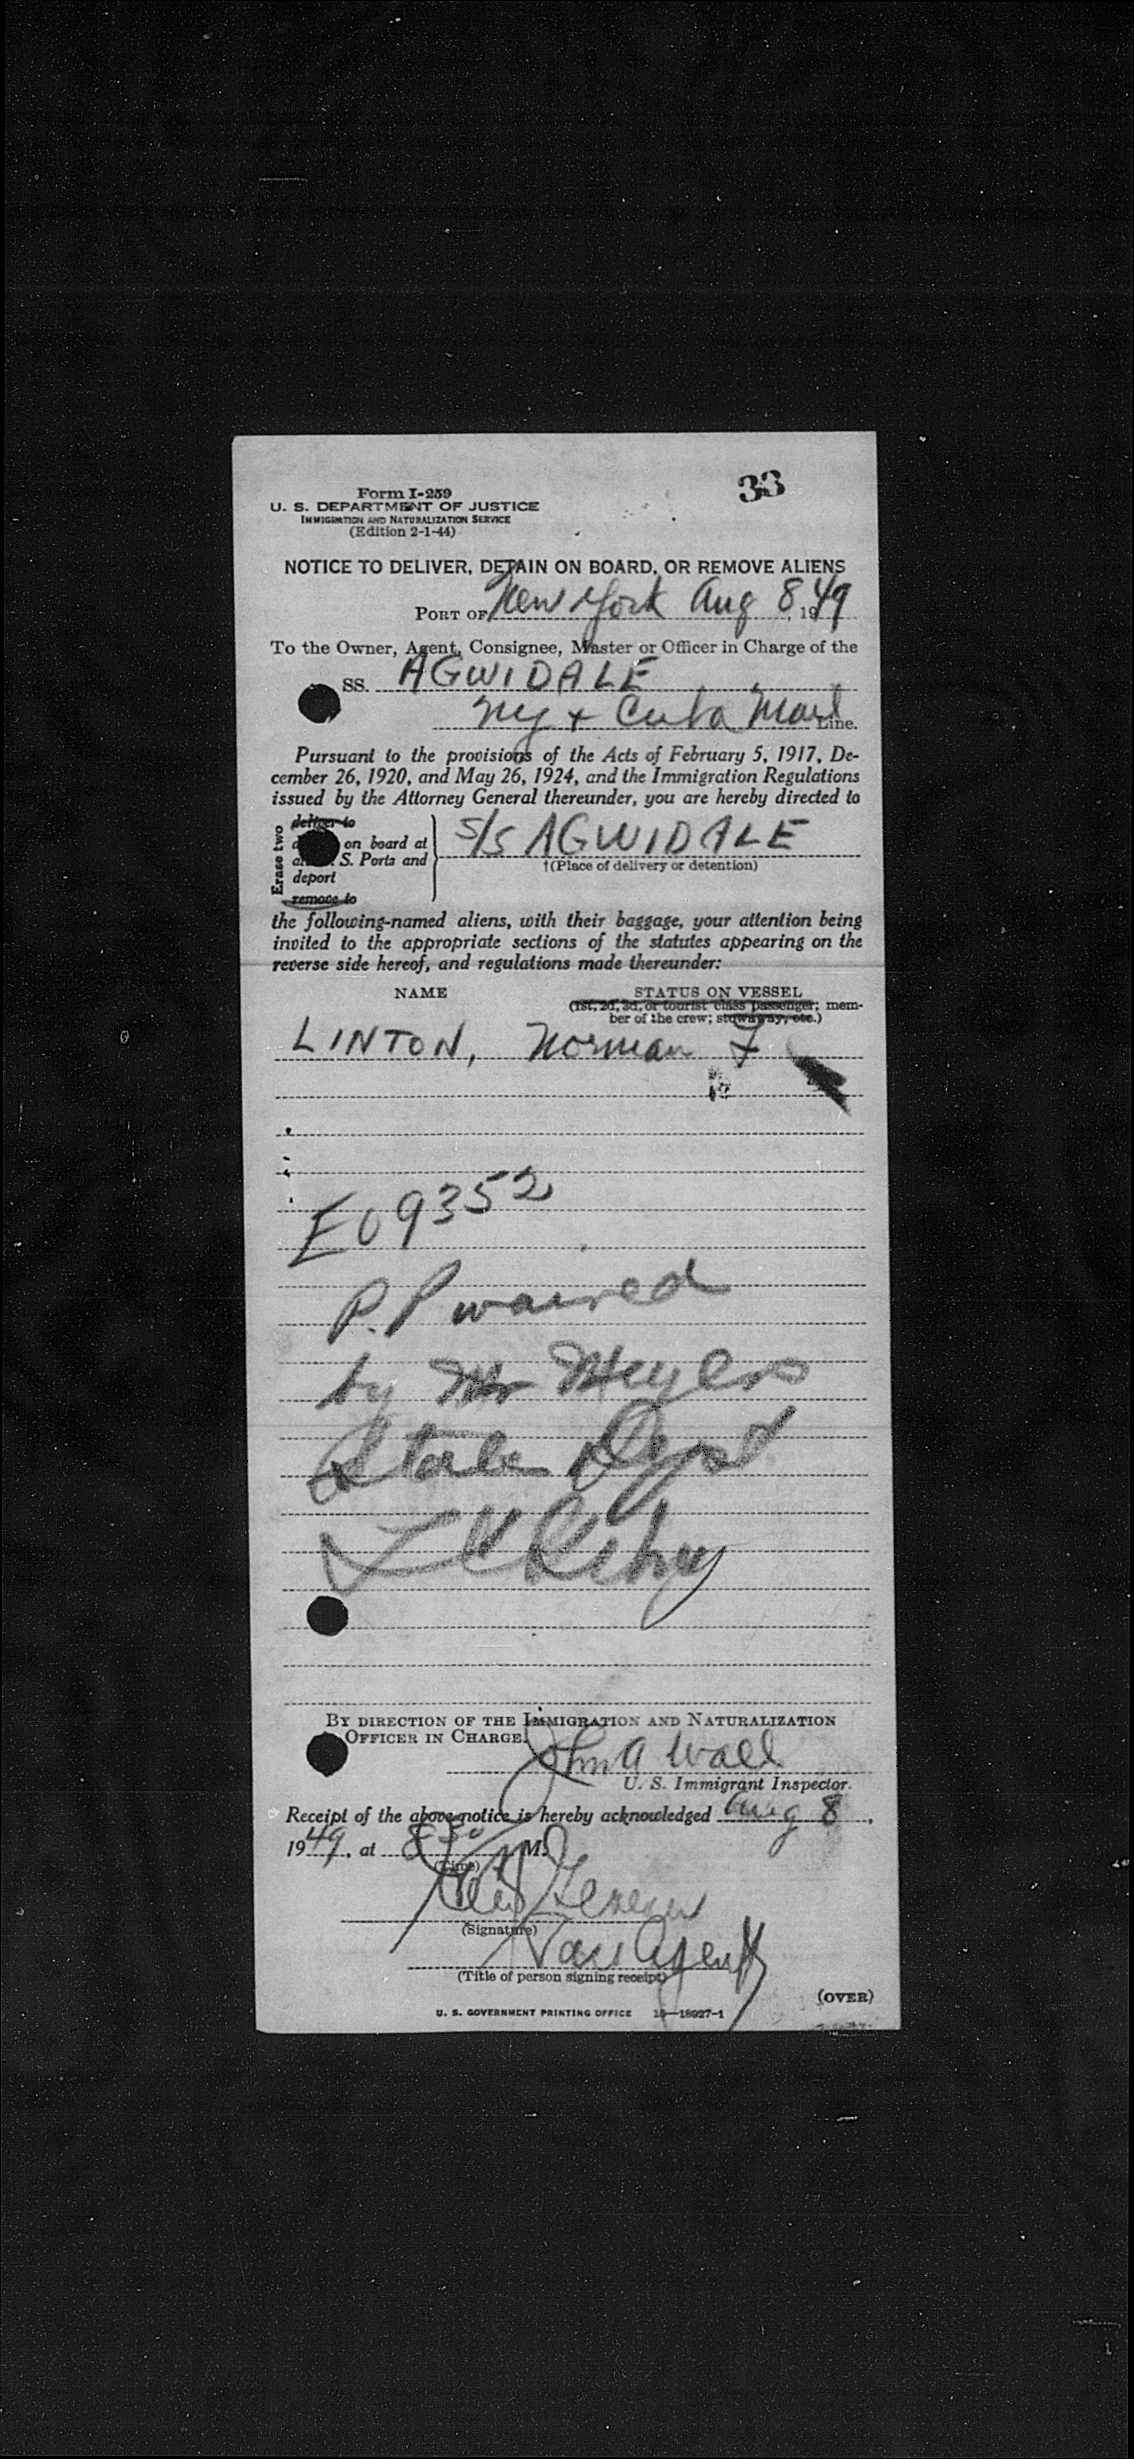 33
Form I-259
U. S. DEPARTMENT OF JUSTICE
IMMIGRATION AND NATURALIZATION SERVICE
(Edition 2-1-44)
NOTICE TO DELIVER, DETAIN ON BOARD, OR REMOVE ALIENS
PORT OF New York Aug 8, 1949
To the Owner, Agent, Consignee, Master or Officer in Charge of the
SS. AGWIDALE
NY + Cuba Mail Line.
Pursuant to the provisions of the Acts of February 5, 1917, De-
cember 26, 1920, and May 26, 1924, and the Immigration Regulations
issued by the Attorney General thereunder, you are hereby directed to
Erase two
deliver to
on board at
S. Ports and
deport
remove to
S/S AGWIDALE
†(Place of delivery or detention)
the following-named aliens, with their baggage, your attention being
invited to the appropriate sections of the statutes appearing on the
reverse side hereof, and regulations made thereunder:
NAME STATUS ON VESSEL
(1st, 2d, 3d, or tourist class passenger; mem-
ber of the crew; stowaway, etc.)
LINTON, Norman F
E09352
P.P waived
by Mr Meyers
State Dept.
BY DIRECTION OF THE IMMIGRATION AND NATURALIZATION
OFFICER IN CHARGE.
John A Wall
U. S. Immigrant Inspector.
Receipt of the above notice is hereby acknowledged Aug 8,
1949, at 830 M.
(Time)
(Signature)
Agent
(Title of person signing receipt)
(OVER)
U. S. GOVERNMENT PRINTING OFFICE 16—18927-1